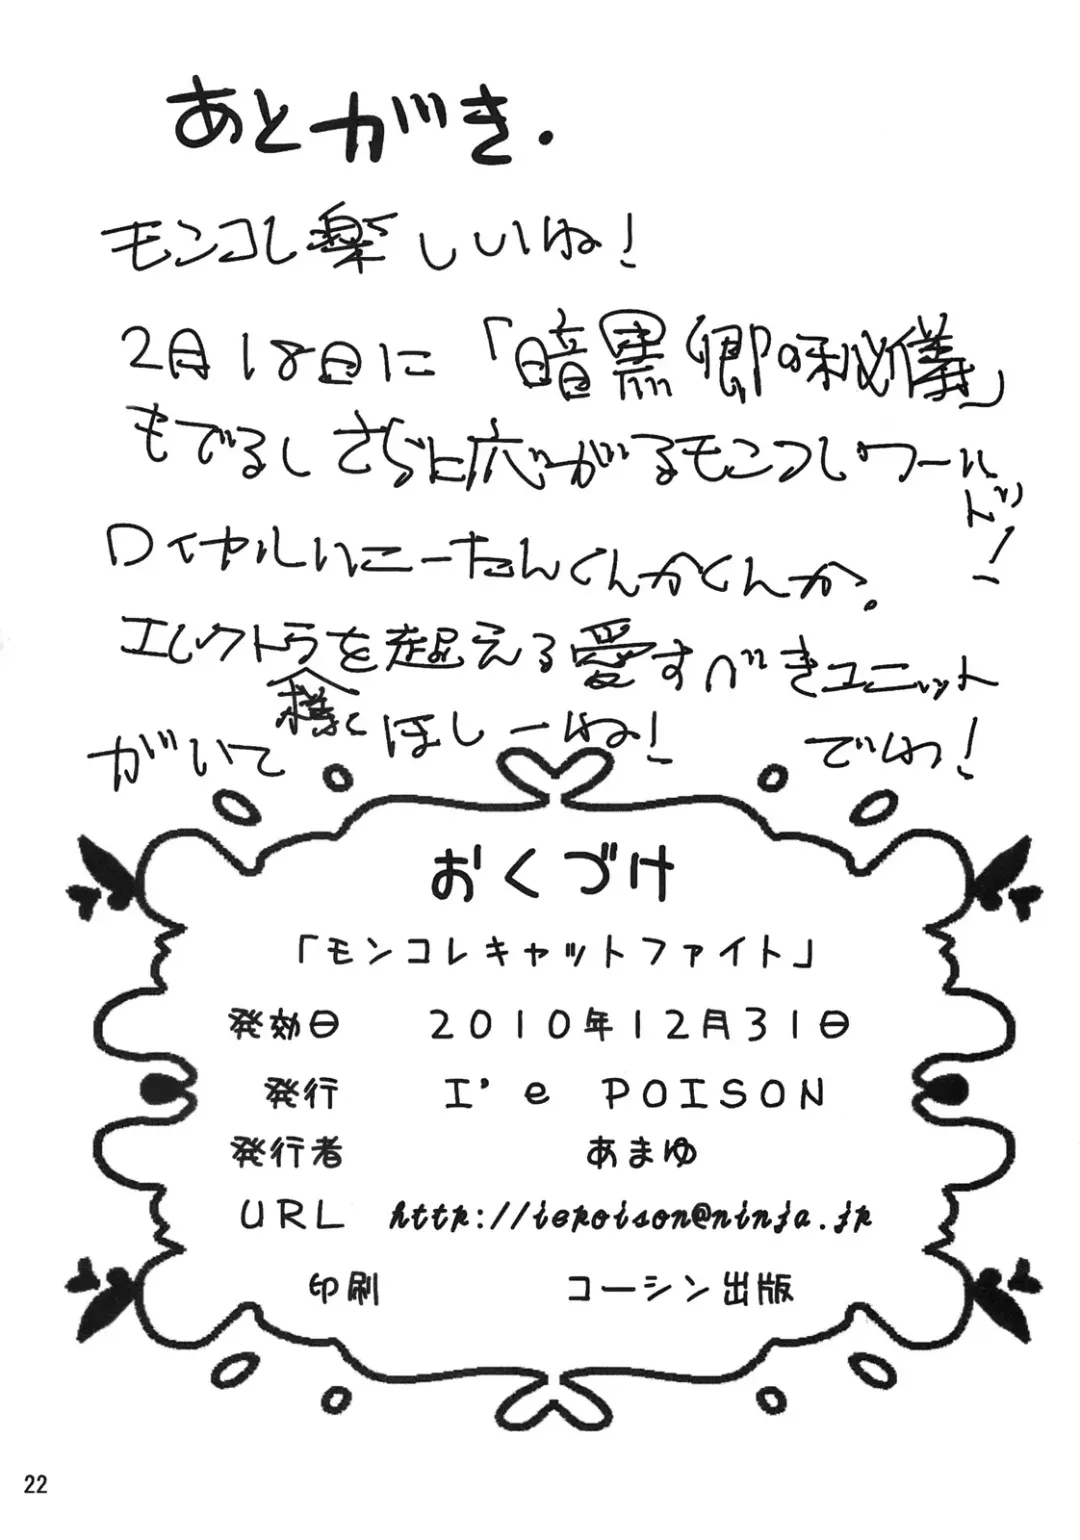 あとがき.
モンコレ楽しいね!
2月18日に「暗黒卿の秘儀」
もでるしさらに広がるモンコレワールド!
ロイヤルハニーたんくんかくんか。
エレクトラ様を超える愛すべきユニット
がいてほしーね! でわ!
おくづけ
「モンコレキャットファイト」
発効日 2010年12月31日
発行 I'e POISON
発行者 あまゆ
URL http://iepoison@ninja.jp
印刷 コーシン出版
22